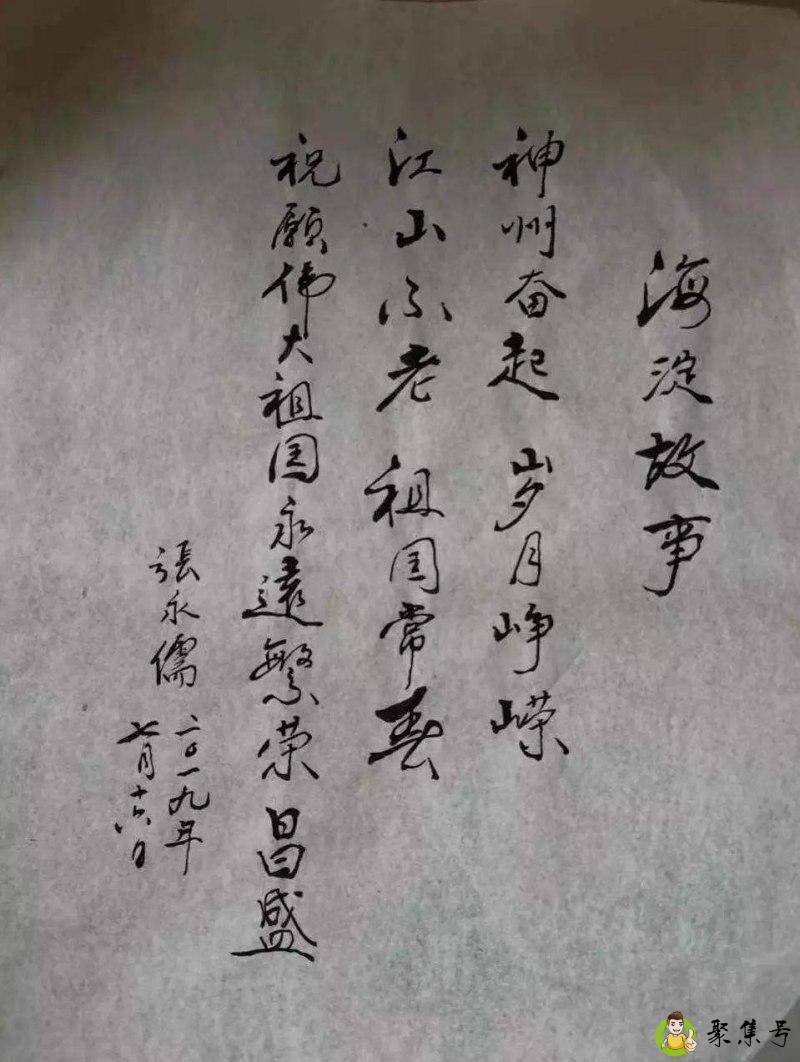 海淀故事
神州奋起 岁月峥嵘
江山不老 祖国常春
祝愿伟大祖国永遠繁荣昌盛
張永儒
二〇一九年
七月十六日
聚集号